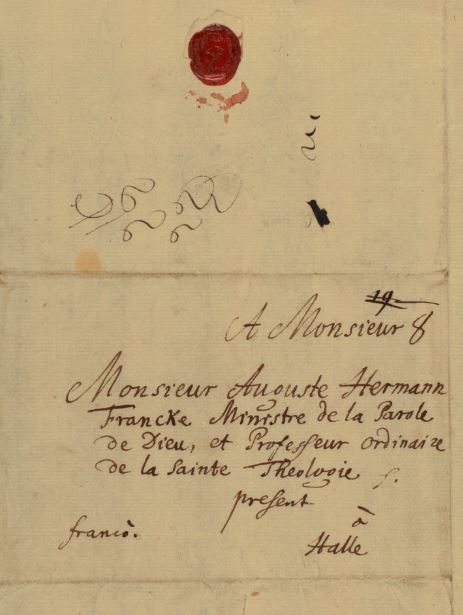 19
A Monsieur 8
Monsieur Auguste Hermann
Francke Ministre de la Parole
de Dieu, et Professeur ordinaire
de la Sainte Theologie
present
à
franco.
Halle